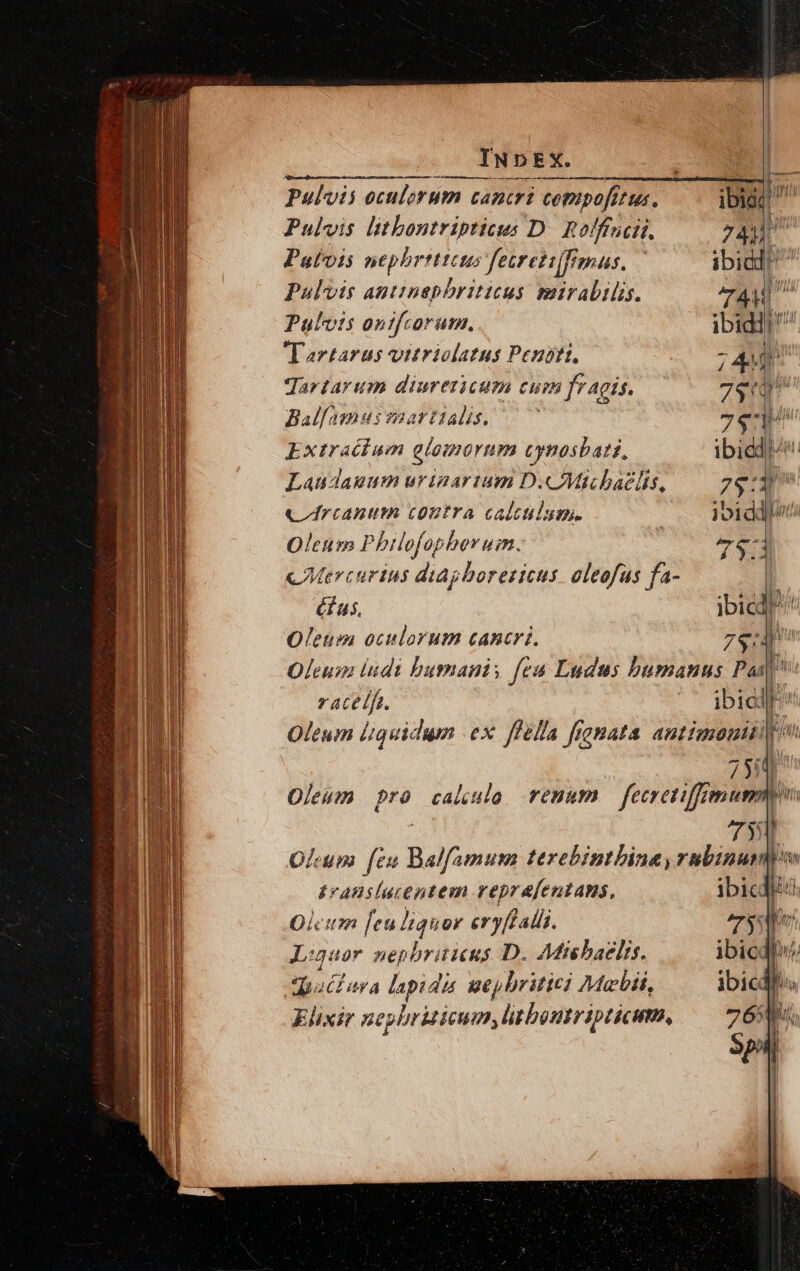 INDEX.
Pulvis oculorum cancri compoſitus. ibid
Pulvis lithontripticus D Rolfincii. 74
Pulvis nephriticus ſecretiſſimus. ibid
Pulvis antinephriticus mirabilis. 74
Pulvis oniſcorum. ibid
Tartarus vitriolatus Penoti, 74
Tartarum diureticum cum fragis. 75
Balſamus martialis. 75
Extractum glomorum cynosbati, ibid
Laudanum urinarium D. Michaëlis, 75
Arcanum contra calculum. ibid
Oleum Philoſophorum. 75
Mercurius diaphoreticus oleoſus fa-
ctus, ibid
Oleum oculorum cancri. 75
Oleum ludi humani, ſeu Ludus humanus Pa
racelſi. ibid
Oleum liquidum ex ſtella ſignata antimonii
75
Oleum pro calculo renum ſecretiſſimum
75
Oleum ſeu Balſamum terebinthinæ, rubinum
translucentem repræſentans, ibid
Oleum ſeu liquor cryſtalli. 75
Liquor nephriticus D. Michaëlis. ibid
Tinctura lapidis nephritici Mæbii, ibid
Elixir nephriticum, lithontripticum, 76
Sp